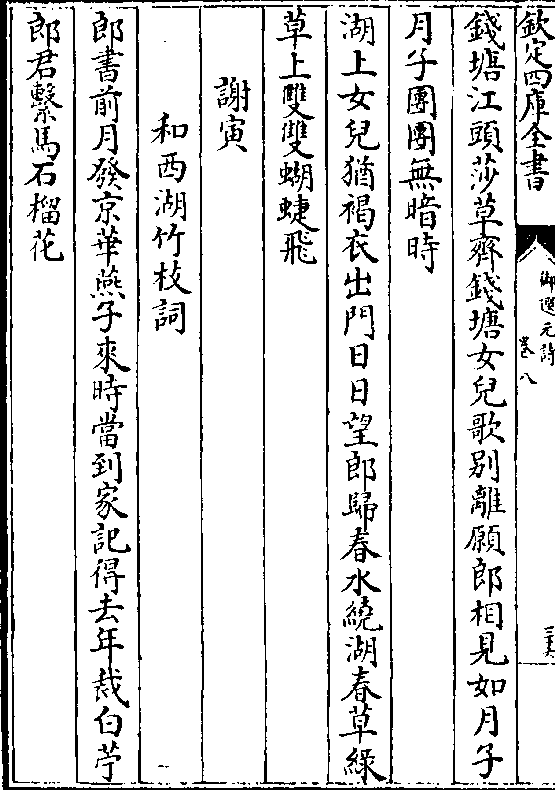 欽定四庫全書
御選元詩
卷八
錢塘江頭莎草齊錢塘女兒歌別離願郎相見如月子
月子團團無暗時
湖上女兒猶褐衣出門日日望郎歸春水繞湖春草緑
草上雙雙蝴蜨飛
謝寅
和西湖竹枝詞
郎書前月發京華燕子來時當到家記得去年裁白苧
郎君繫馬石榴花